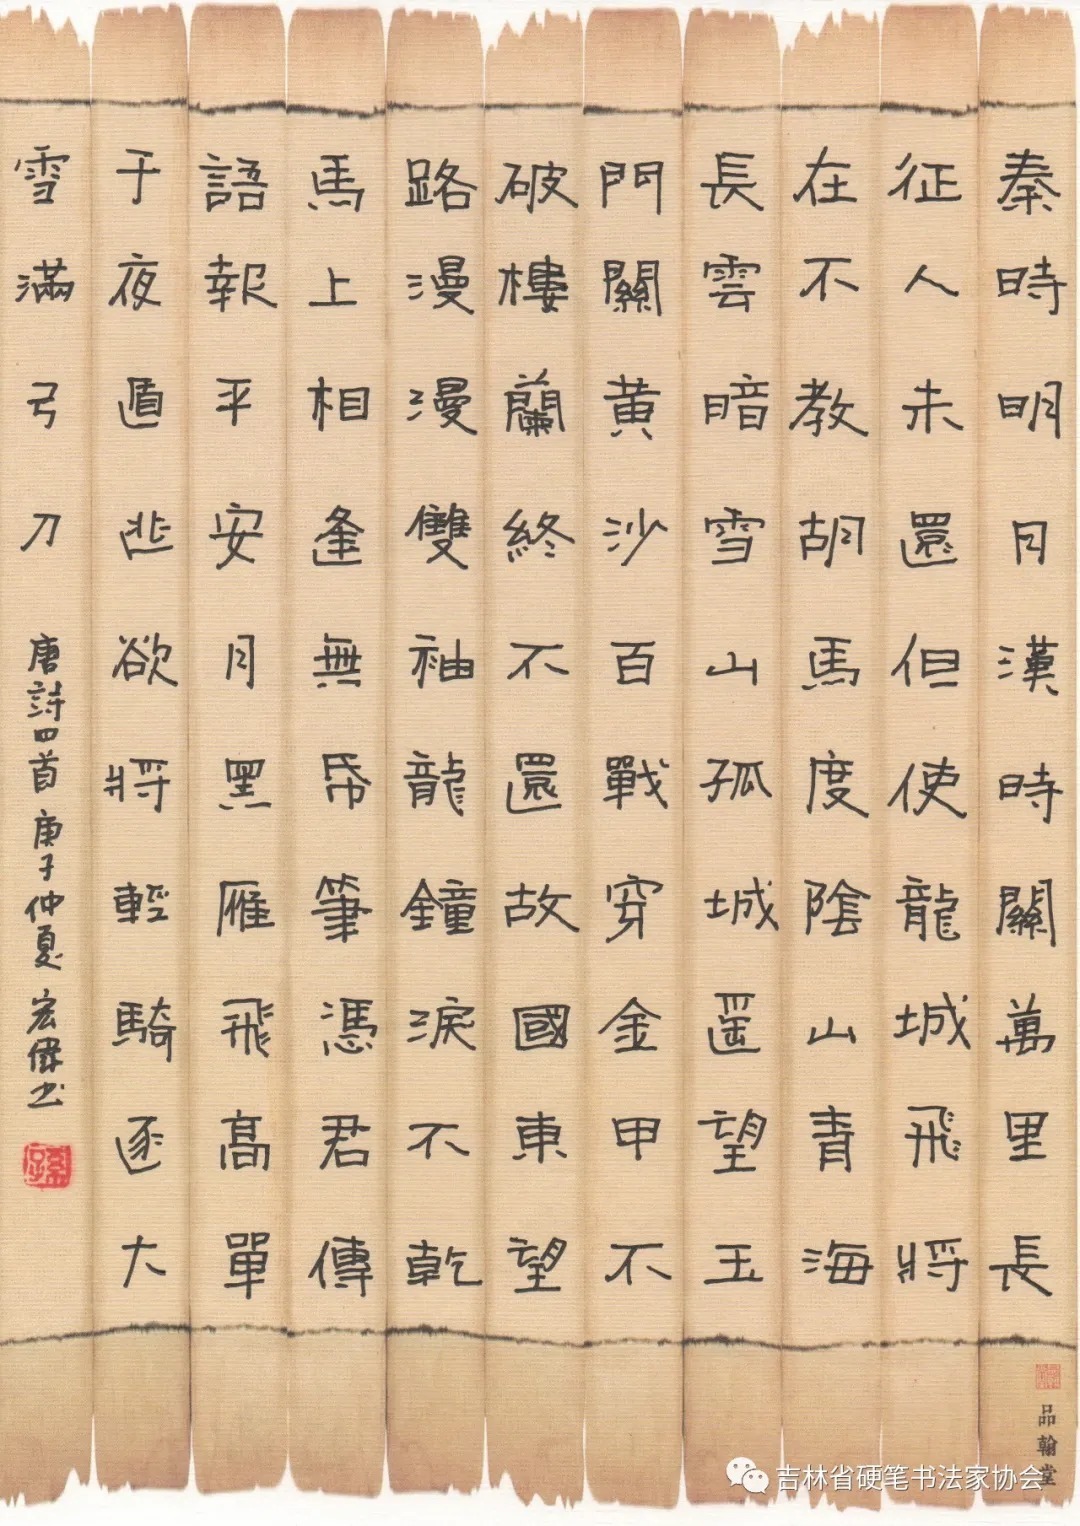 秦時明月漢時關萬里長
征人未還但使龍城飛將
在不教胡馬度陰山青海
長雲暗雪山孤城遥望玉
門關黄沙百戰穿金甲不
破樓蘭終不還故國東望
路漫漫雙袖龍鐘淚不乾
馬上相逢無帋筆憑君傳
語報平安月黑雁飛高單
于夜遁逃欲將輕騎逐大
雪滿弓刀
唐詩四首 庚子仲夏 宏偉书
品翰堂
吉林省硬笔书法家协会